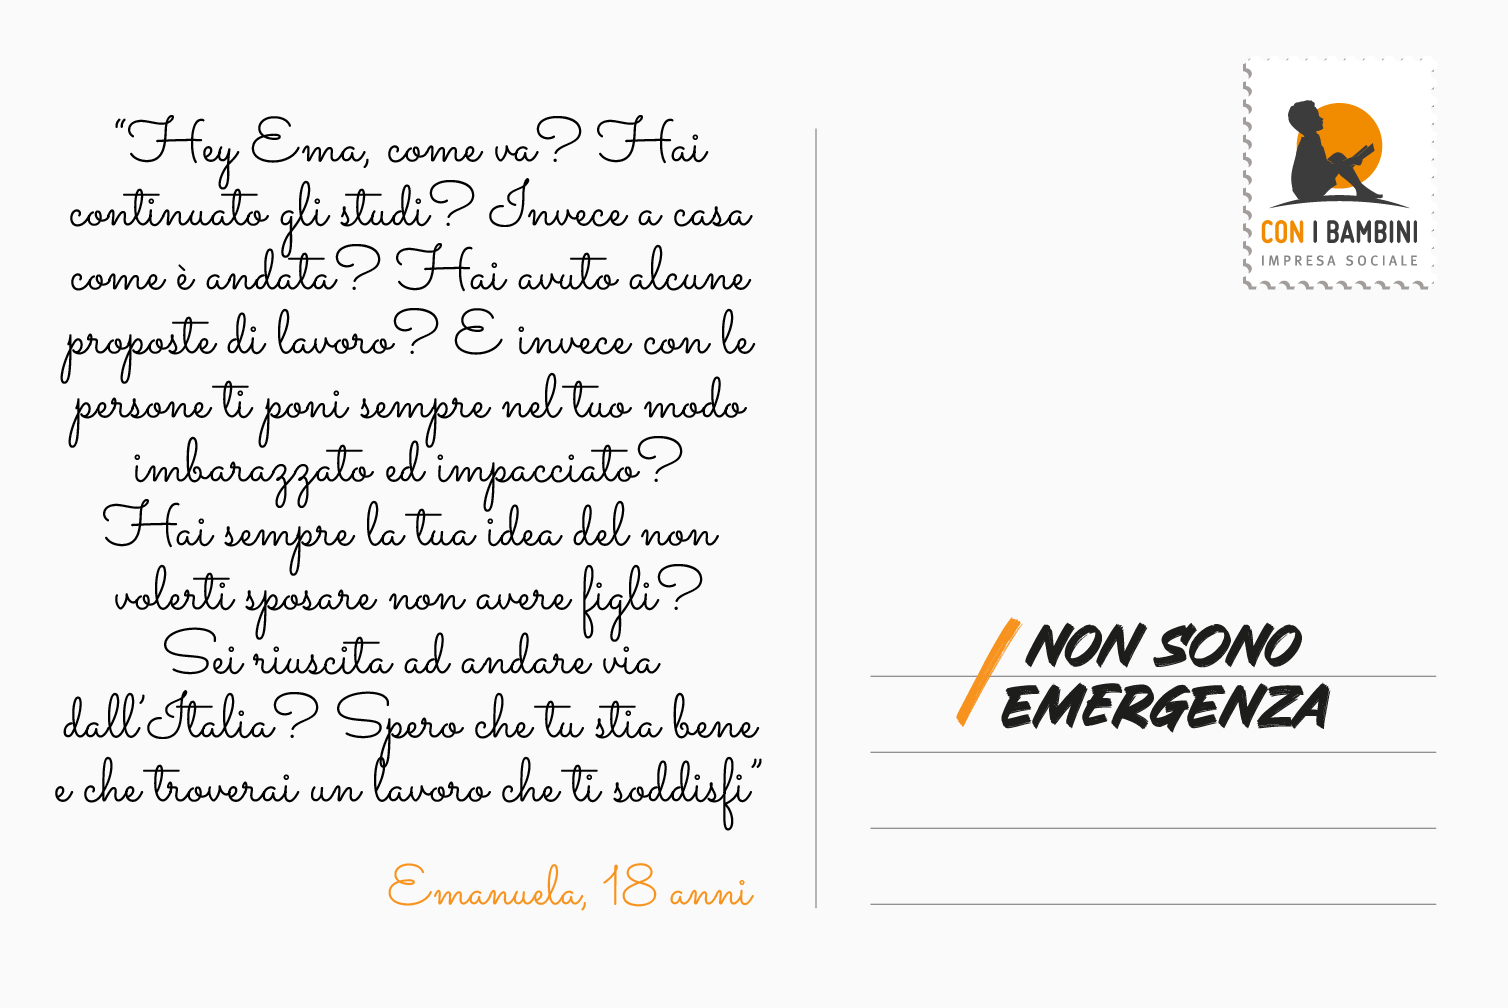 “Hey Ema, come va? Hai
continuato gli studi? Invece a casa
come è andata? Hai avuto alcune
proposte di lavoro? E invece con le
persone ti poni sempre nel tuo modo
imbarazzato ed impacciato?
Hai sempre la tua idea del non
volerti sposare non avere figli?
Sei riuscita ad andare via
dall’Italia? Spero che tu stia bene
e che troverai un lavoro che ti soddisfi”
Emanuela, 18 anni
CON I BAMBINI
IMPRESA SOCIALE
NON SONO
EMERGENZA